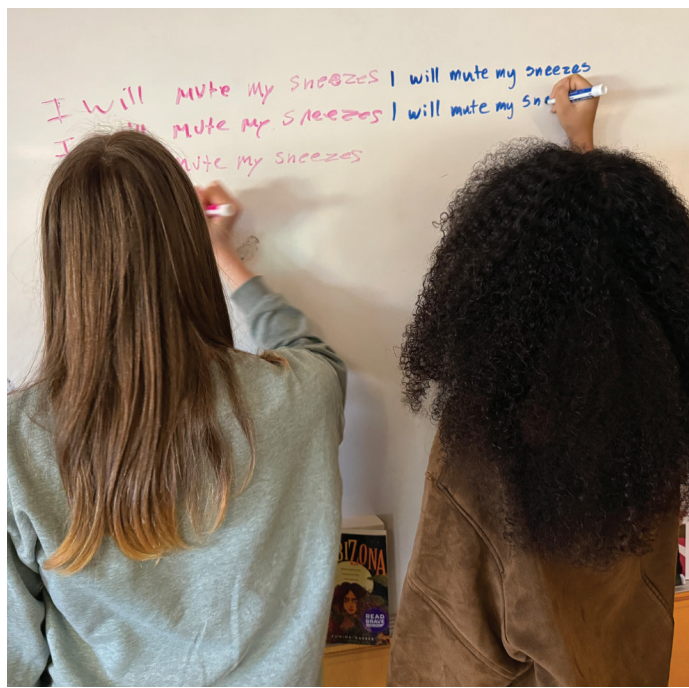 I will mute my sneezes I will mute my sneezes
I mute my sneezes I will mute my sne
mute my sneezes
BIZONA
READ
BRAVE